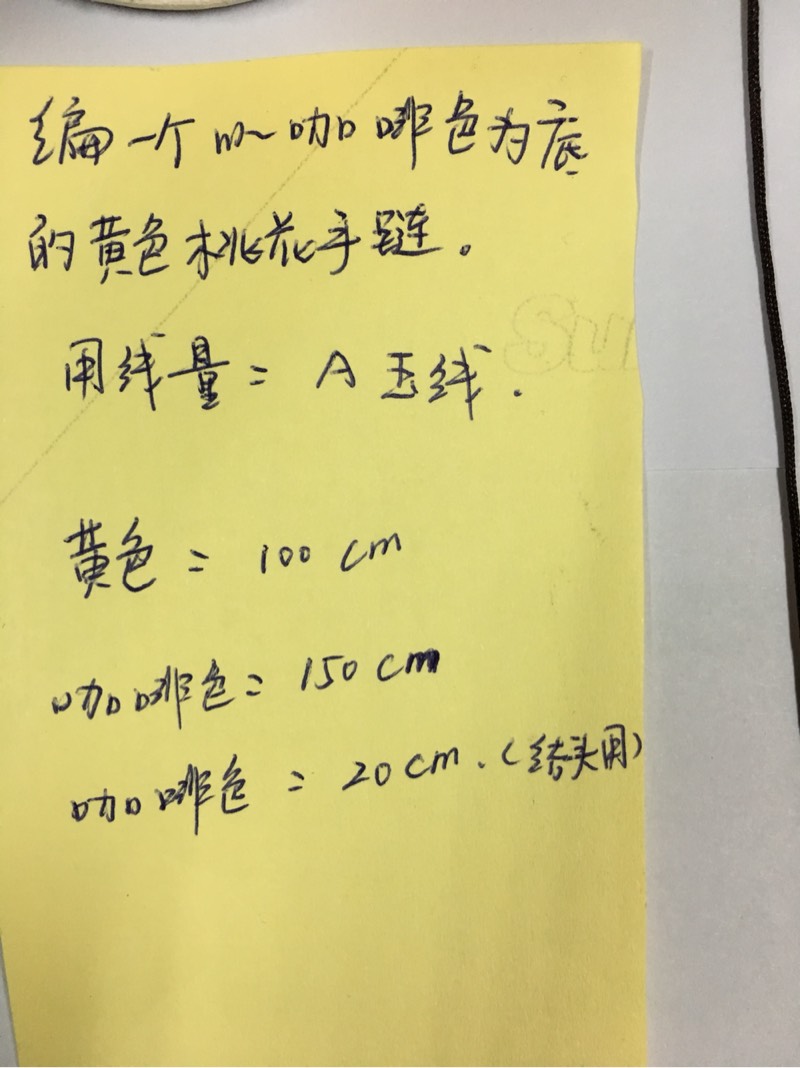 编一个以咖啡色为底
的黄色桃花手链。
用线量= A玉线.
黄色= 100cm
咖啡色= 150cm
咖啡色= 20cm.(结头用)